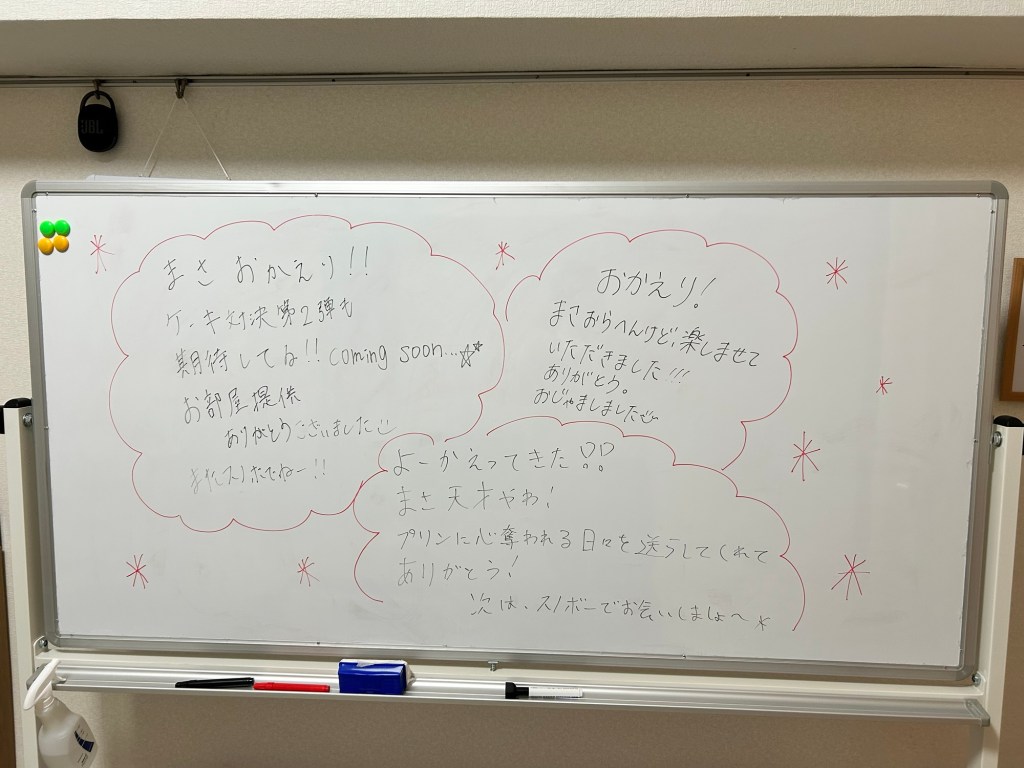 JBL
まさ おかえり!!
ケーキ対決第2弾も
期待してる!! coming soon...☆☆
お部屋提供
ありがとうございました
スノボでねー!!
おかえり!
まさおらへんけど、楽しませて
いただきました!!!
ありがとう。
おじゃましました
よーかえってきた!?
まさ天才やわ!
プリンに心奪われる日々を送らしてくれて
ありがとう!
次は、スノボーでお会いしましょ〜